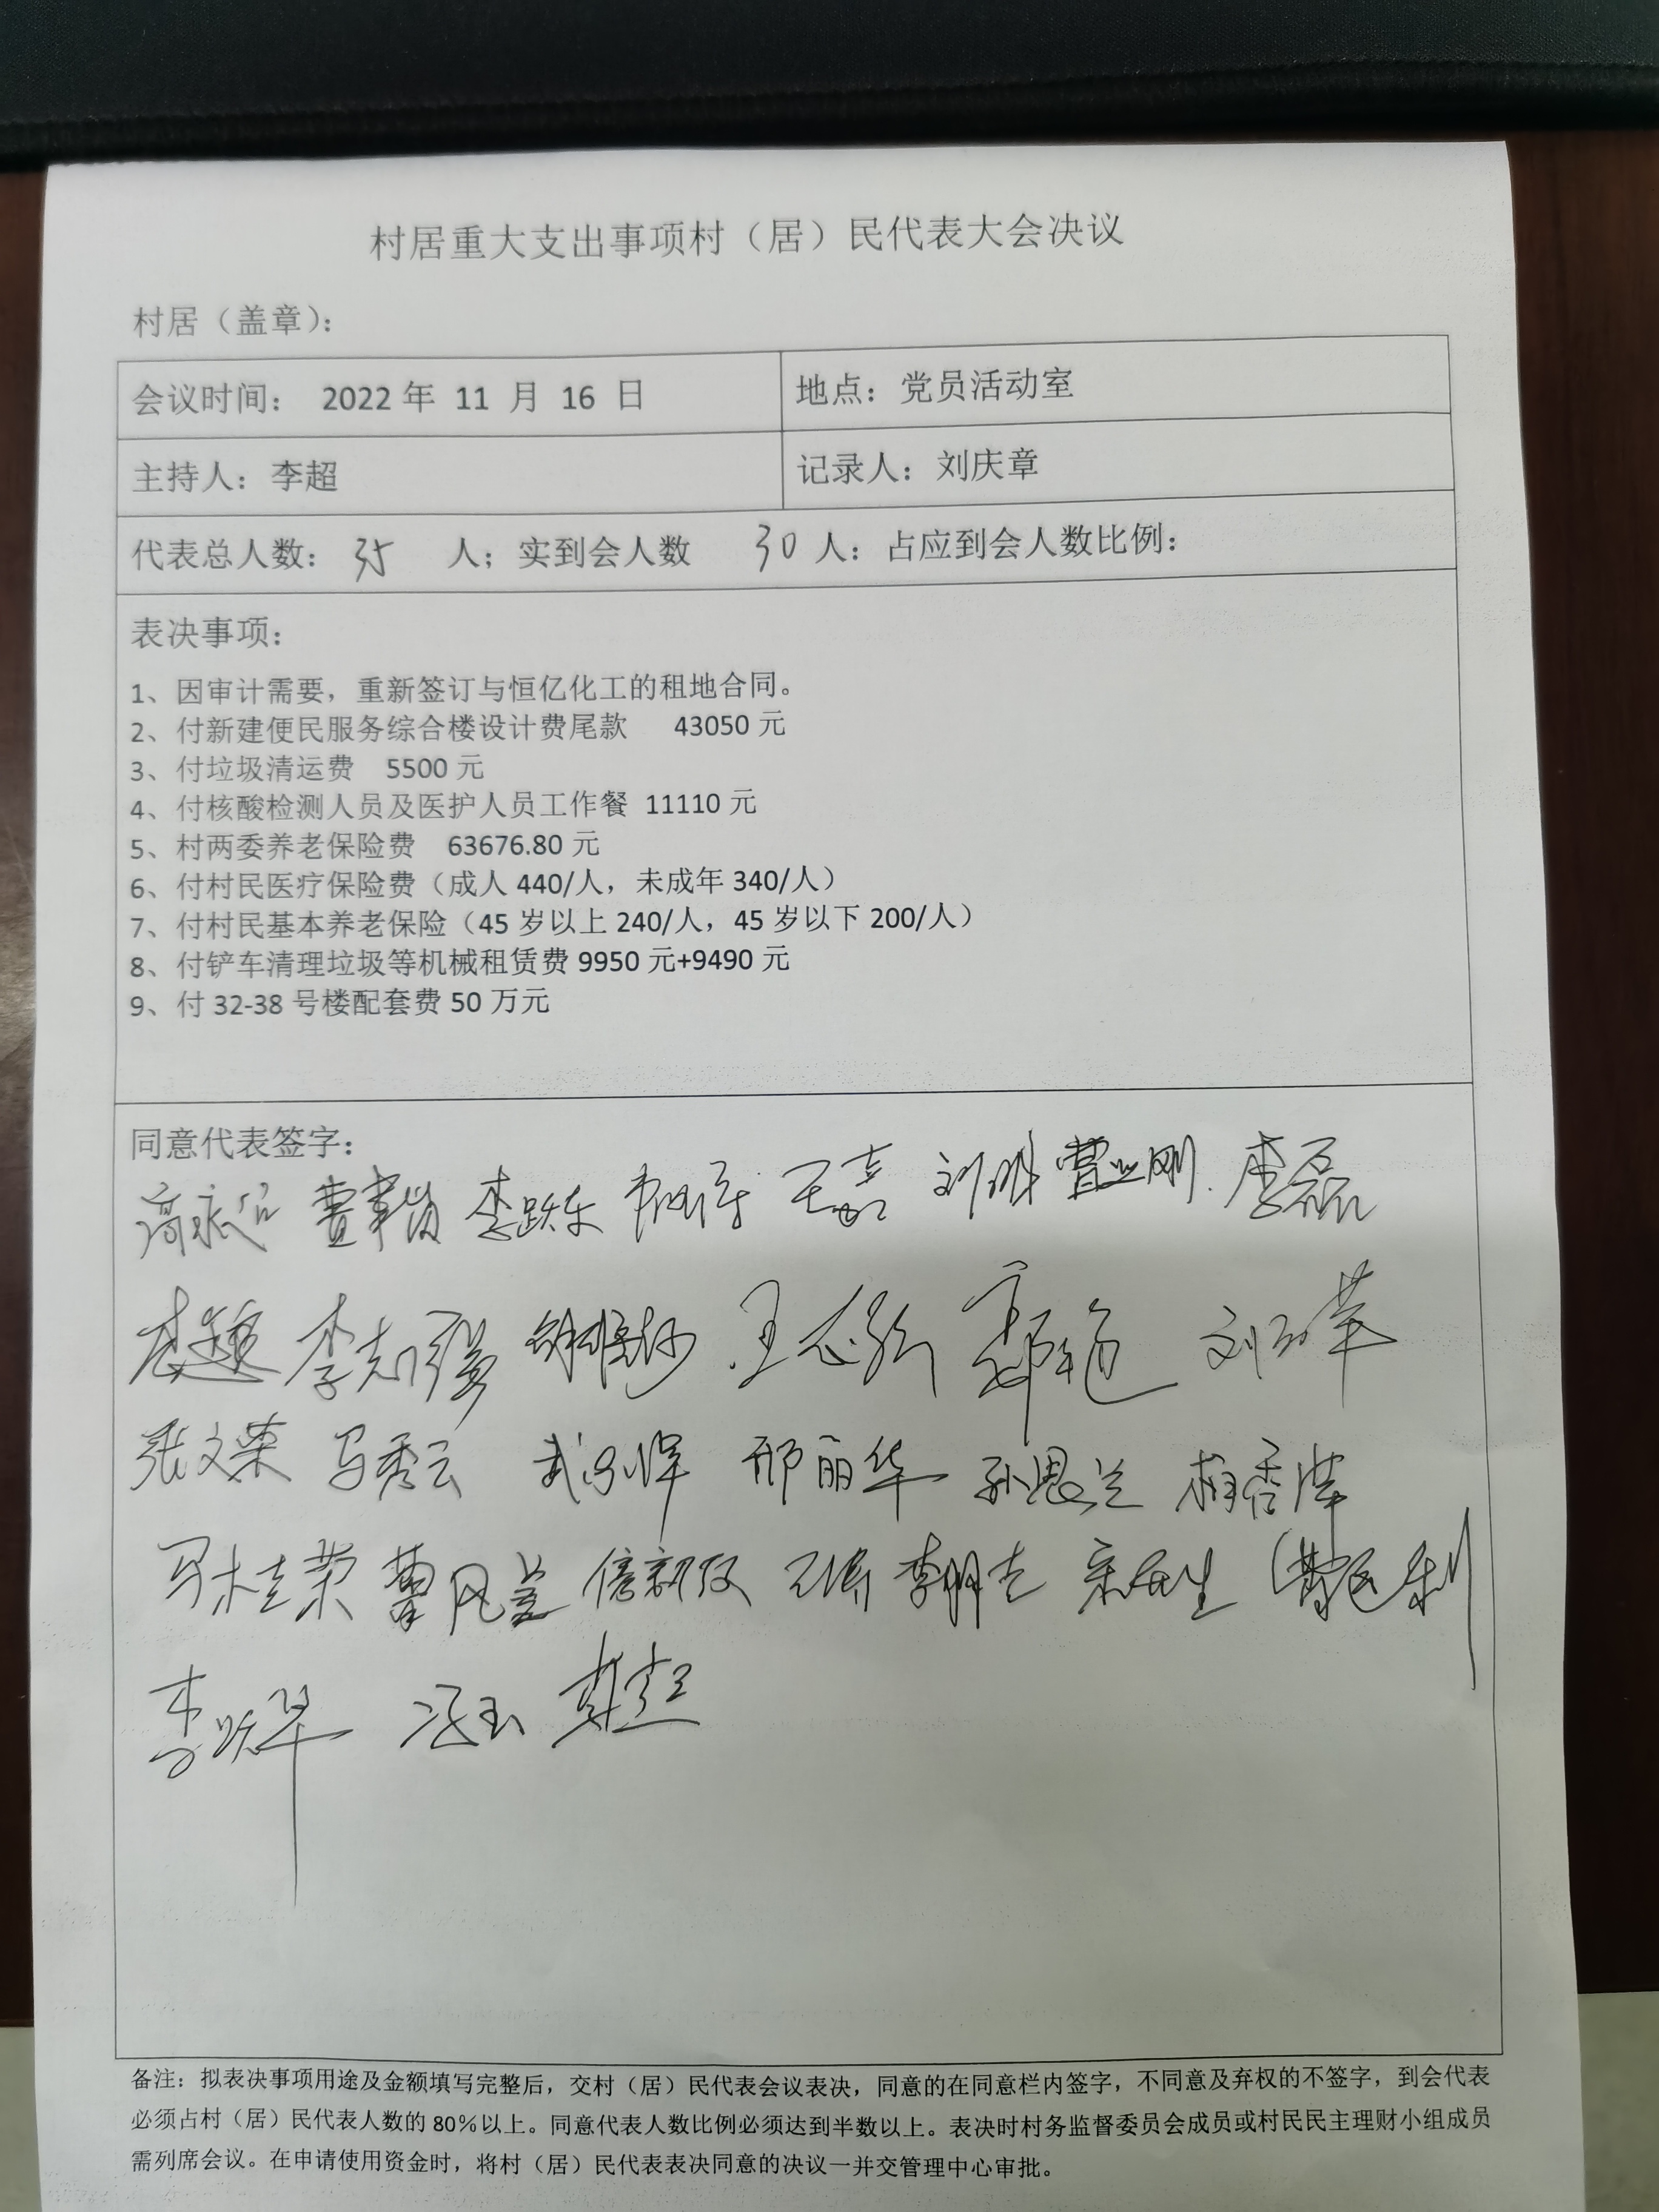 村居重大支出事项村（居）民代表大会决议
村居（盖章）：
会议时间： 2022 年 11 月 16 日
地点：党员活动室
主持人：李超
记录人：刘庆章
代表总人数： 35 人；实到会人数 30 人：占应到会人数比例：
表决事项：
1、因审计需要，重新签订与恒亿化工的租地合同。
2、付新建便民服务综合楼设计费尾款 43050 元
3、付垃圾清运费 5500 元
4、付核酸检测人员及医护人员工作餐 11110 元
5、村两委养老保险费 63676.80 元
6、付村民医疗保险费（成人 440/人，未成年 340/人）
7、付村民基本养老保险（45 岁以上 240/人，45 岁以下 200/人）
8、付铲车清理垃圾等机械租赁费 9950 元+9490 元
9、付 32-38 号楼配套费 50 万元
同意代表签字：
李跃东 王嘉 李磊
李志强
张文荣 马秀云 邢丽华 孙思兰
马桂荣
冯玉
备注：拟表决事项用途及金额填写完整后，交村（居）民代表会议表决，同意的在同意栏内签字，不同意及弃权的不签字，到会代表
必须占村（居）民代表人数的 80%以上。同意代表人数比例必须达到半数以上。表决时村务监督委员会成员或村民民主理财小组成员
需列席会议。在申请使用资金时，将村（居）民代表表决同意的决议一并交管理中心审批。